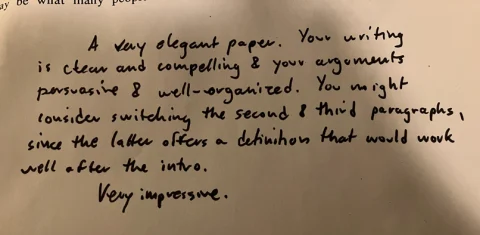 ay be what many people
A very elegant paper. Your writing
is clear and compelling & your arguments
persuasive & well-organized. You might
consider switching the second & third paragraphs,
since the latter offers a definition that would work
well after the intro.
Very impressive.